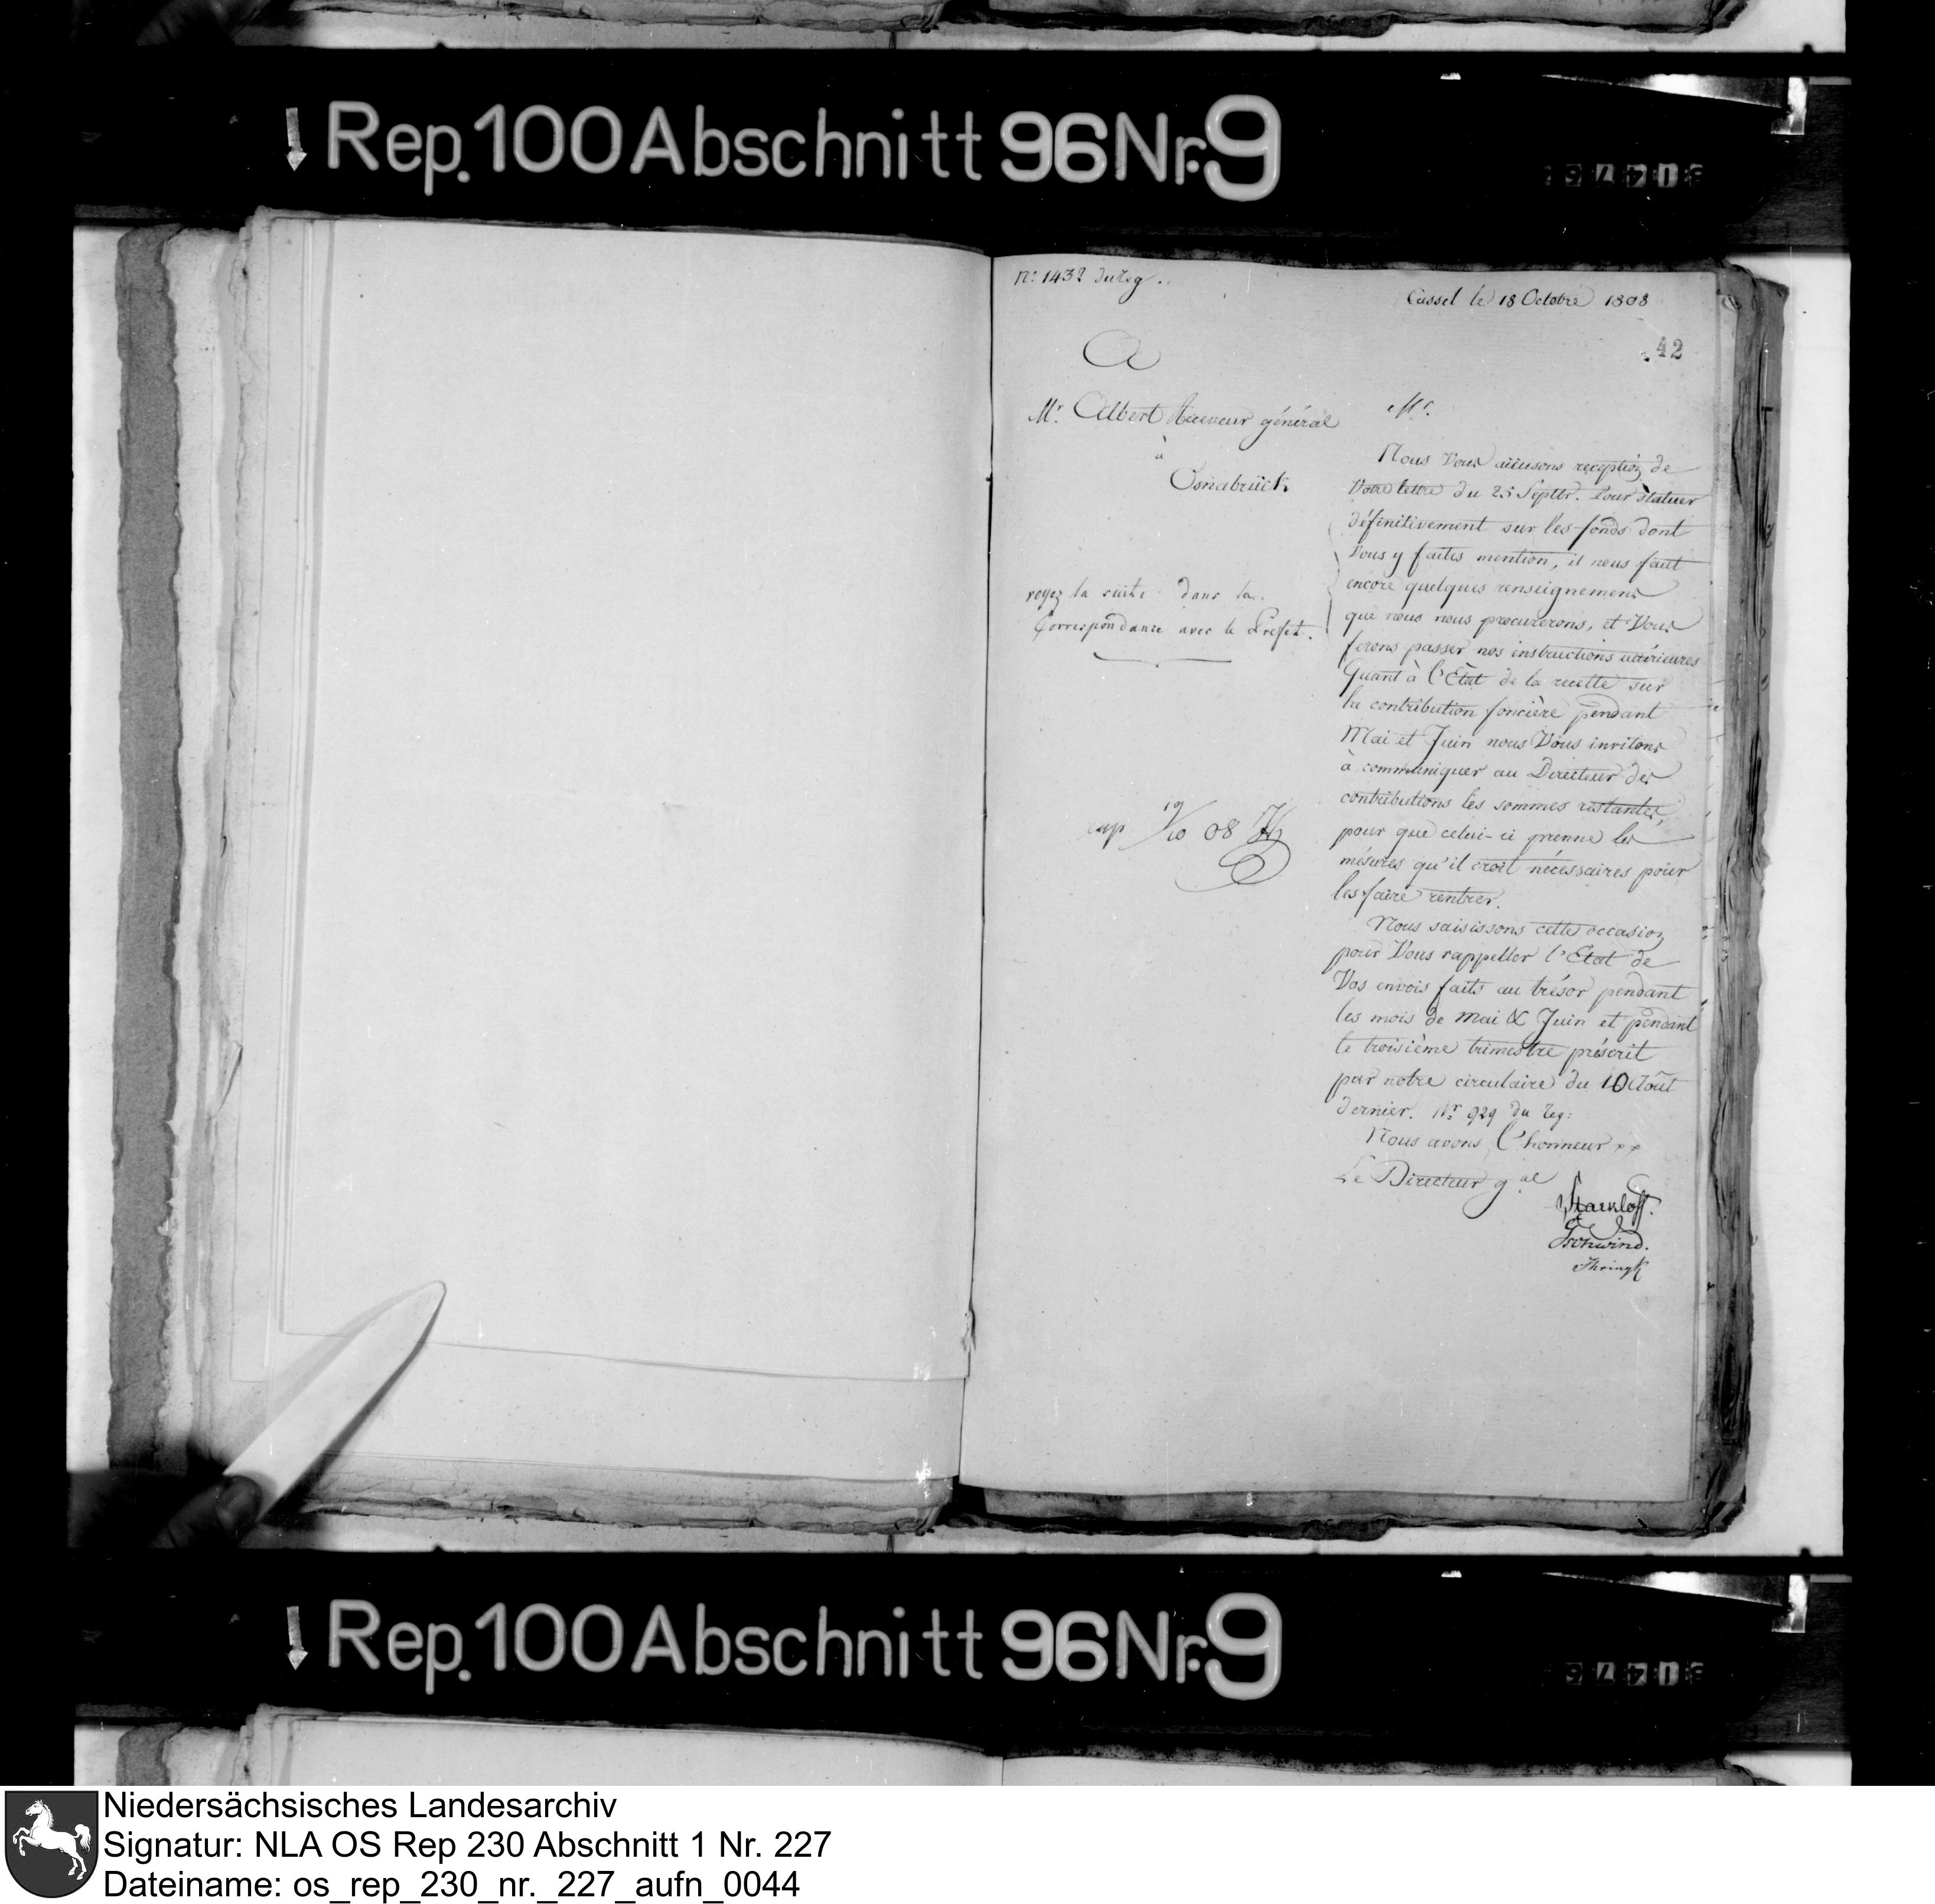 Rep. 100 Abschnitt 96 Nr. 9
N: 1432 du Reg.
Cassel le 18 Octobre 1808
42
A
Mr. Albert Receveur général
à
Osnabrück.
voyez la suite dans la
Correspondance avec le Préfet.
exp 19/10 08
Mr.
Nous Vous accusons reception de
Votre lettre du 25 Septbr. Pour statuer
définitivement sur les fonds dont
Vous y faites mention, il nous faut
encore quelques renseignemens
que nous nous procurerons, et Vous
ferons passer nos instructions ultérieures
Quant à l'Etat de la recette sur
la contribution foncière pendant
Mai et Juin nous Vous invitons
à communiquer au Directeur des
contributions les sommes restantes,
pour que celui-ci prenne les
mésures qu'il croit nécessaires pour
les faire rentrer.
Nous saisissons cette occasion
pour Vous rappeller l'Etat de
Vos envois faits au trésor pendant
les mois de Mai & Juin et pendant
le troisième trimestre préscrit
par notre circulaire du 10 Août
dernier. Nr. 929 du Reg:
Nous avons l'honneur
Le Directeur gal
Starkloff.
Gschwind.
Rep. 100 Abschnitt 96 Nr. 9
Niedersächsisches Landesarchiv
Signatur: NLA OS Rep 230 Abschnitt 1 Nr. 227
Dateiname: os_rep_230_nr._227_aufn_0044